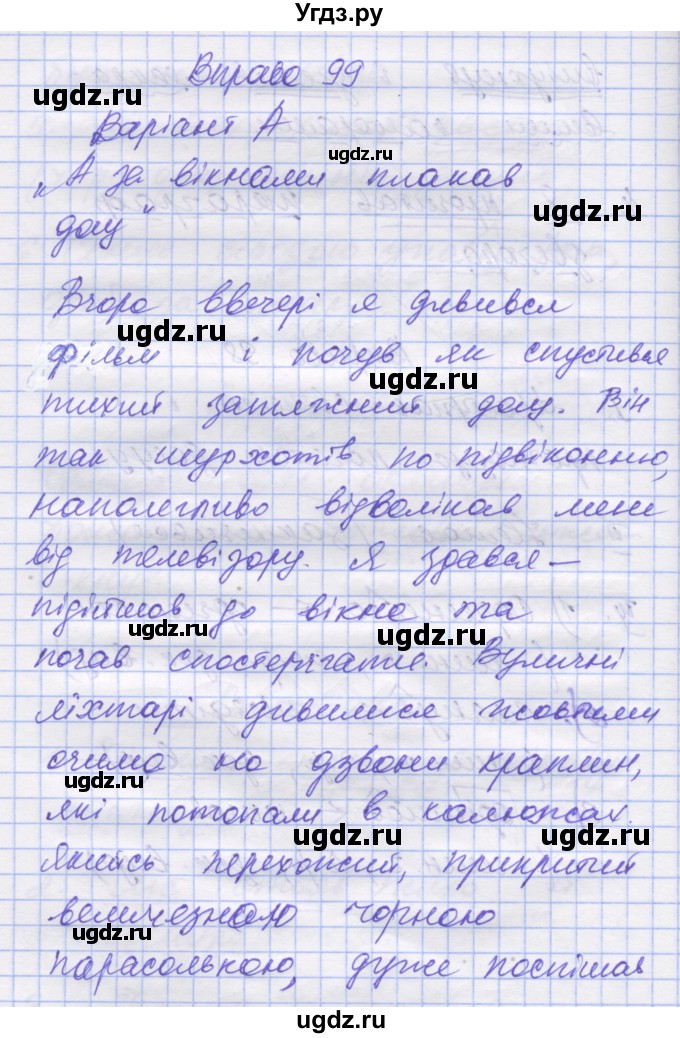 Угдз.ру
Вправа 99
ugdz.ru
Варіант А
ugdz.ru
„А за вікнами плакав
дощ"
Вчора ввечері я дивився
ugdz.ru
фільм і почув як спустився
ugdz.ru
тихий затяжний дощ. Він
так шурхотів по підвіконню,
наполегливо відволікав мене
від телевізору. Я здався —
підійшов до вікна та
ugdz.ru
ugdz.ru
почав спостерігати. Вуличні
ліхтарі дивилися жовтими
очима на дзвони краплин,
ugdz.ru
які потопали в калюжах.
ugdz.ru
Якийсь перехожий, прикритий
величезною чорною
ugdz.ru
парасолькою, дуже поспішав
ugdz.ru